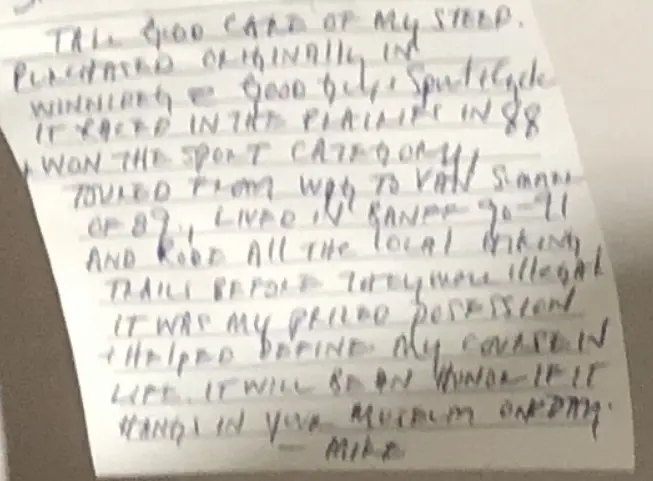 TAKE GOOD CARE OF MY STEED.
PURCHASED ORIGINALLY IN
WINNIPEG @ GOOD Guys Sport & Cycle
IT RACED IN THE PRAIRIES IN 88
& WON THE SPORT CATEGORY,
TOURED FROM WPG TO VAN SUMMER
OF 89, LIVED IN BANFF 90-91
AND RODE ALL THE LOCAL HIKING
TRAILS BEFORE THEY WERE illEGAL
IT WAS MY PRIZED POSESSION
& HELPED DEFINE MY COURSE IN
LIFE. IT WILL BE AN HONOR IF IT
HANGS IN YOUR MUSEUM ONE DAY.
- MIKE